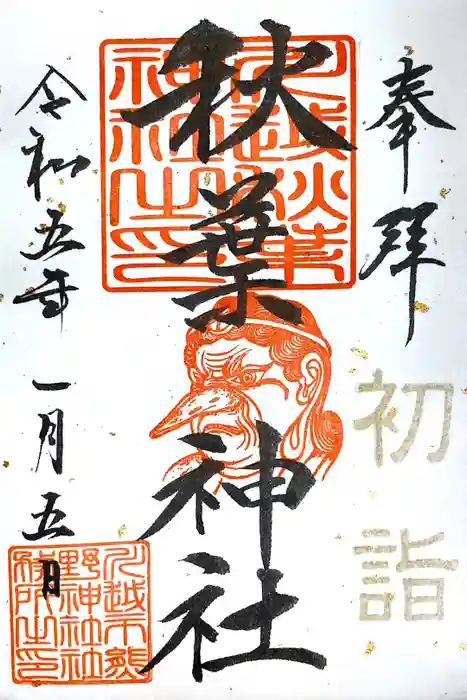 奉拝
初詣
秋葉神社
川越秋葉神社之印
令和五年一月五日
川越熊野神社社務所之印